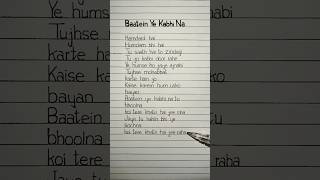 Baatein Ye Kabhi Na
Hamdard hai
Humdam bhi hai
Tu saath hai to zindagi
Tu jo kabhi door rahe
Ye humse ho jaye ajnabi
Tujhse mohabbat
karte hain jo
Kaise karein hum usko
bayan
Baatein ye kabhi na tu
bhoolna
koi tere khatir hai jee raha
Jaye tu kahin bhi ye
sochna
koi tere khatir hai jee raha
Ye humse
Tujhse
karte
Kaise kare
bayan
Baatein
bhoolna
koi tere
ajnabi
usko
na tu
jee raha